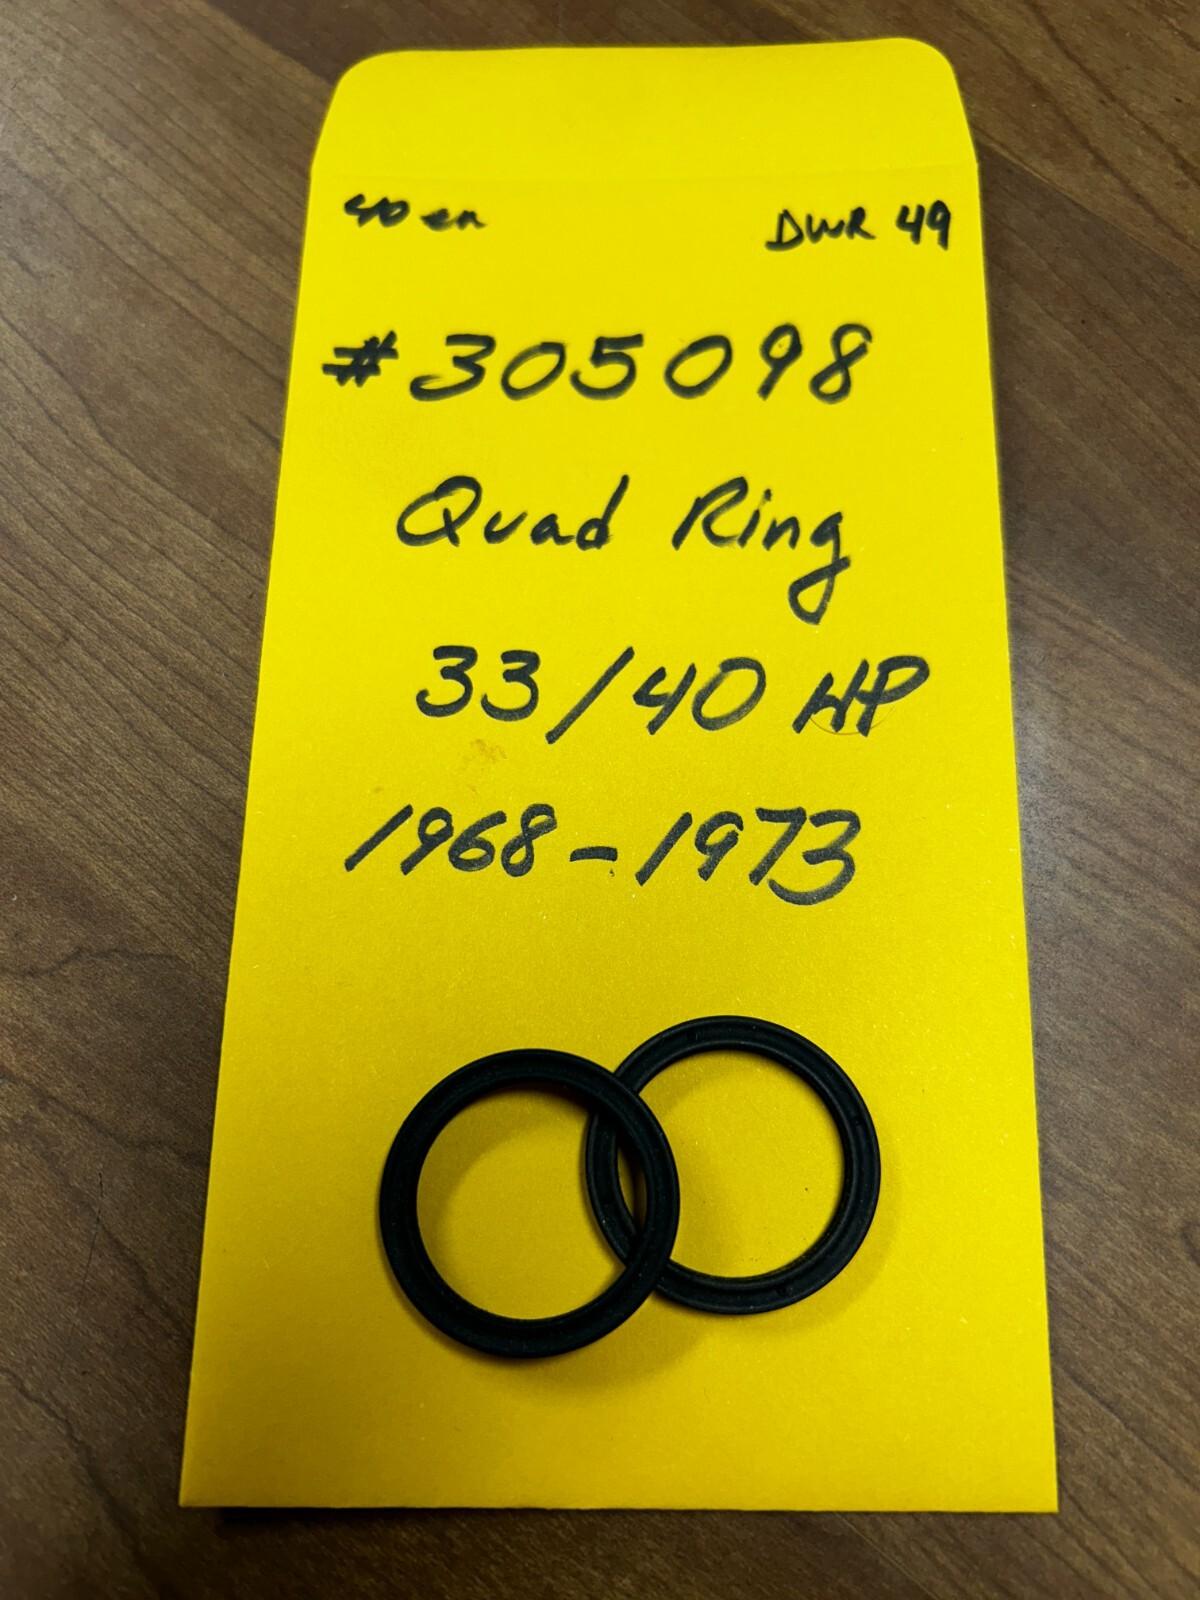 40 ea DWR 49
#305098
Quad Ring
33/40 HP
1968-1973